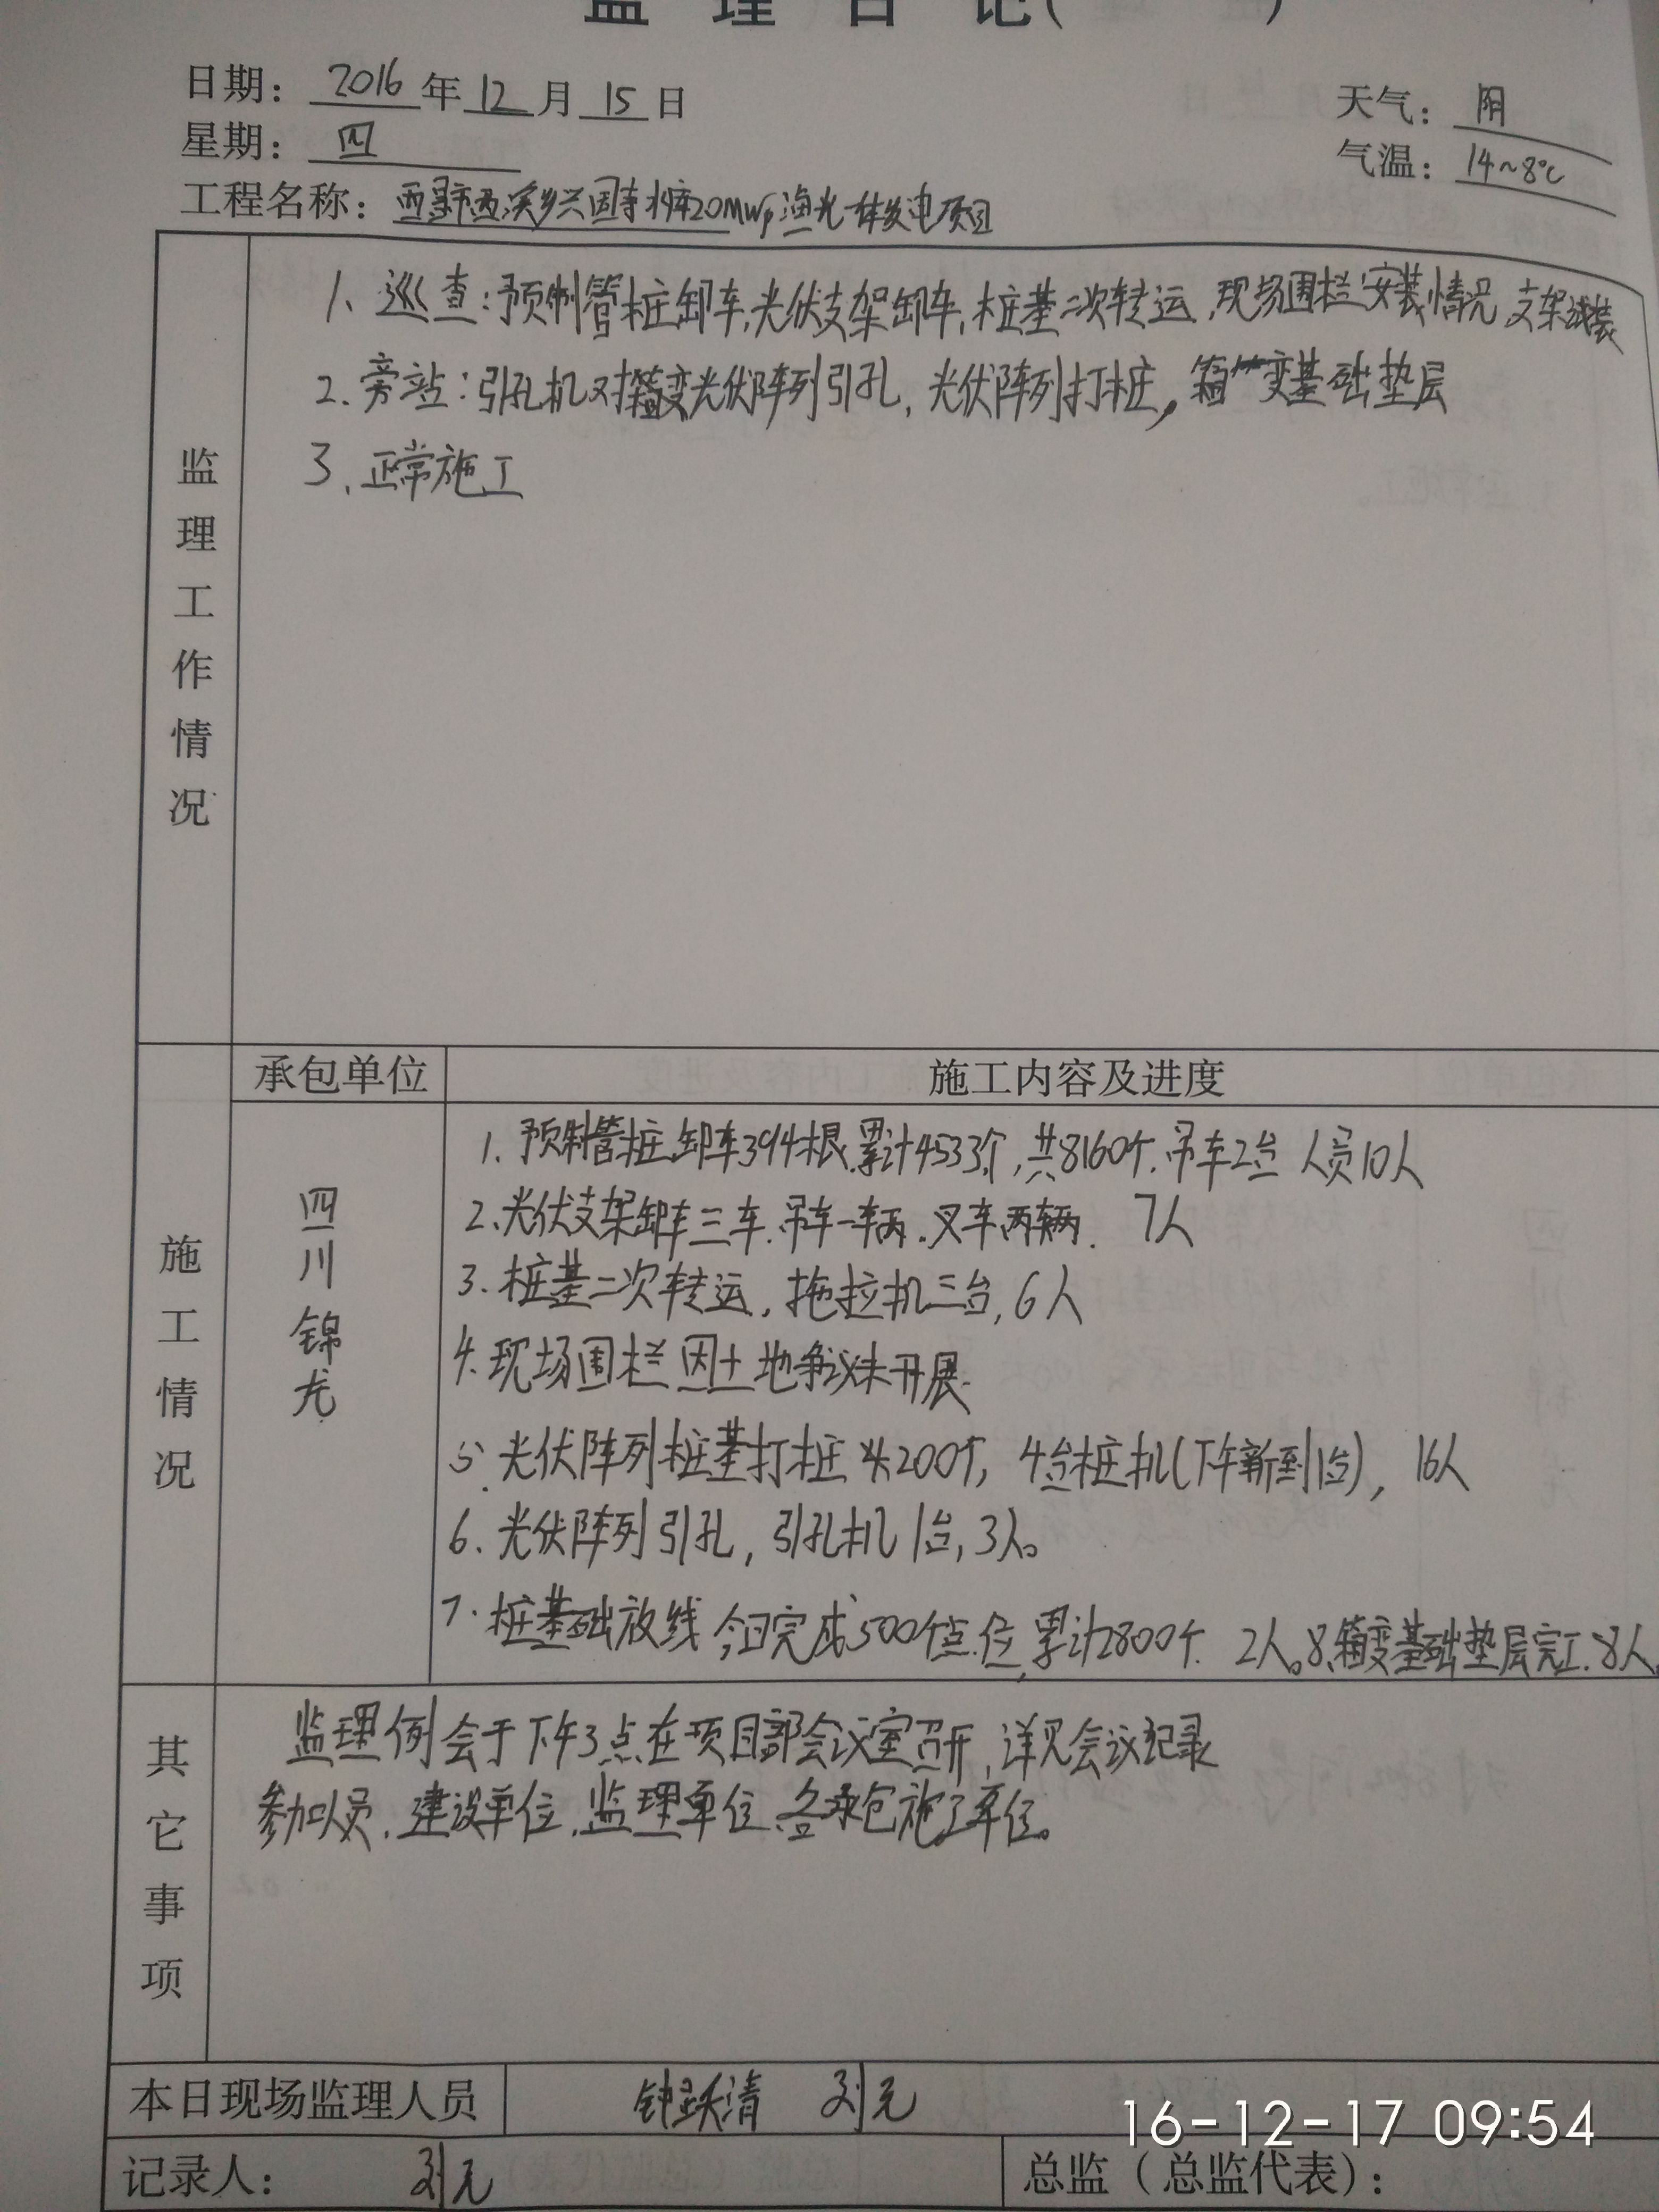 监 理 日 记( )
日期: 2016 年 12 月 15 日
天气: 阴
星期: 四
气温: 14~8℃
工程名称: 西昌市西溪乡兴国寺水库20MWp渔光一体发电项目
监理工作情况
1、巡查:预制管桩卸车,光伏支架卸车,桩基二次转运,现场围栏安装情况,支架试装
2、旁站:引孔机对箱变光伏阵列引孔,光伏阵列打桩,箱变基础垫层
3、正常施工
承包单位
施工内容及进度
施工情况
四川锦尤
1、预制管桩卸车394根.累计4533个,共8160个.吊车2台 人员10人
2、光伏支架卸车三车.吊车一辆.叉车两辆. 7人
3、桩基二次转运,拖拉机三台,6人
4、现场围栏因土地争议未开展.
5、光伏阵列桩基打桩 200个,4台桩机(下午新到1台),16人
6、光伏阵列引孔,引孔机1台,3人。
7、桩基础放线 今日完成500个点位,累计2800个. 2人。8、箱变基础垫层完工.8人.
其它事项
监理例会于下午3点在项目部会议室召开,详见会议纪录
参加人员.建设单位.监理单位.各承包施工单位。
本日现场监理人员
钟跃清 刘元
16-12-17 09:54
记录人: 刘元
总监(总监代表):